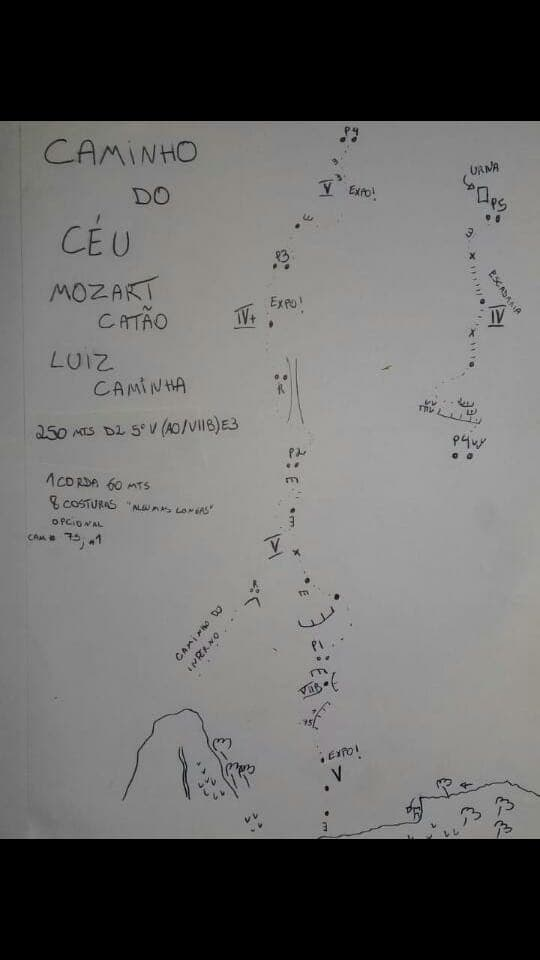 CAMINHO
DO
CÉU
MOZART
CATÃO
LUIZ
CAMINHA
250 MTS D2 5º V (A0/VIIB) E3
1 CORDA 60 MTS
8 COSTURAS "ALGUMAS LONGAS"
OPCIONAL
CAM # .75, #1
P4
V EXPO!
E
P3
EXPO!
IV+
R
P2
E
E
V
X
R
E
CAMINHO DO
INFERNO
P1
E
VIIB
.75
EXPO!
V
E
URNA
P5
X
ESCADARIA
IV
X
P4